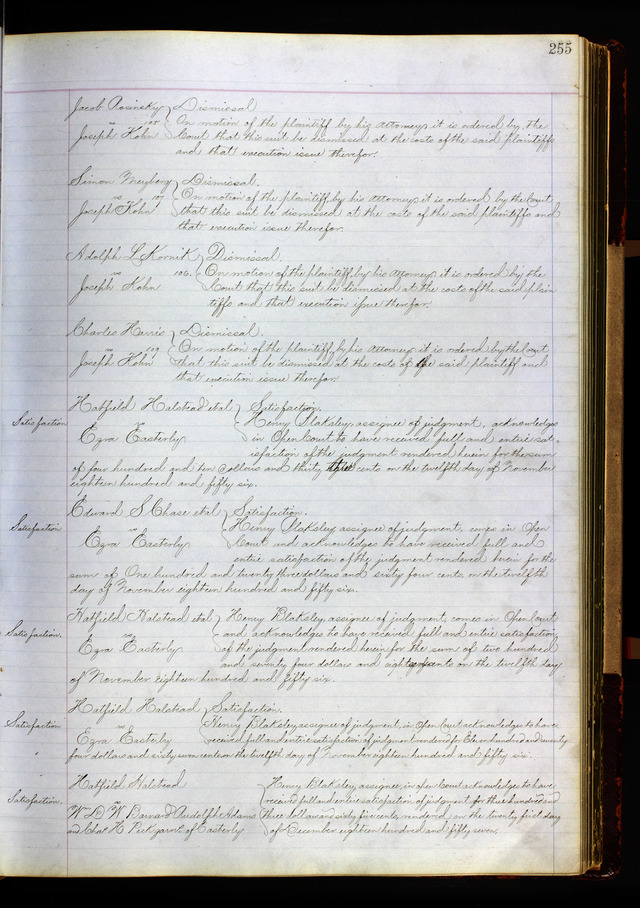 255
Jacob Rosinsky } Dismissal
vs On motion of the plaintiff by his Attorney, it is ordered by the
Joseph Kohn Court that this suit be dismissed at the costs of the said plaintiffs
and that execution issue therefor.
Simon } Dismissal.
vs 107 On motion of the plaintiff, by his Attorney, it is ordered by the Court
Joseph Kohn that this suit be dismissed at the costs of the said plaintiffs and
that execution issue therefor.
Adolph L Kornik } Dismissal.
vs 106. On motion of the plaintiff, by his Attorney, it is ordered by the
Joseph Kohn Court that this suit be dismissed at the costs of the said plain
tiffs and that execution issue therefor.
Charles Harris } Dismissal.
vs 109 On motion of the plaintiff, by his Attorney it is ordered by the Court
Joseph Kohn that this suit be dismissed at the costs of the said plaintiff and
that execution issue therefor.
Hatfield Halstead etal } Satisfaction.
Satisfaction vs Henry Blaksley, assignee of judgment, acknowledges
Ezra Easterly in Open Court to have received full and entire sat-
isfaction of the judgment rendered herein for the sum
of four hundred and ten dollars and thirty cents on the twelfth day of November
eighteen hundred and fifty six.
Edward S Chase etal } Satisfaction.
Satisfaction vs Henry Blaksley, assignee of judgment, comes in Open
Ezra Easterly Court and acknowledge to have received full and
entire satisfaction of the judgment rendered herein for the
sum of One hundred and twenty three dollars and sixty four cents, on the twelfth
day of November eighteen hundred and fifty six.
Hatfield Halstead etal } Henry Blaksley, assignee of judgment, comes in Open Court
Satisfaction. vs and acknowledges to have received full and entire satisfaction,
Ezra Easterly of the judgment rendered herein for the sum of two hundred
and seventy four dollars and cents on the twelfth day
of November Eighteen hundred and fifty six
Hatfield Halstead } Satisfaction.
Satisfaction vs Henry Blaksley assignee of judgment, in Open Court acknowledge to have
Ezra Easterly received full and entire satisfaction of judgment rendered for Eleven hundred and twenty
four dollars and sixty seven cents on the twelfth day of November eighteen hundred and fifty six.
Hatfield Halstead } Henry Blaksley, assignee, in open Court acknowledge to have
Satisfaction. vs received full and entire satisfaction of judgment for three hundred and
W. D. W. Barnard Audolph Adams three dollars and sixty five cents, rendered on the twenty first day
and Chas H Peck garns. of Easterly of December eighteen hundred and fifty seven.